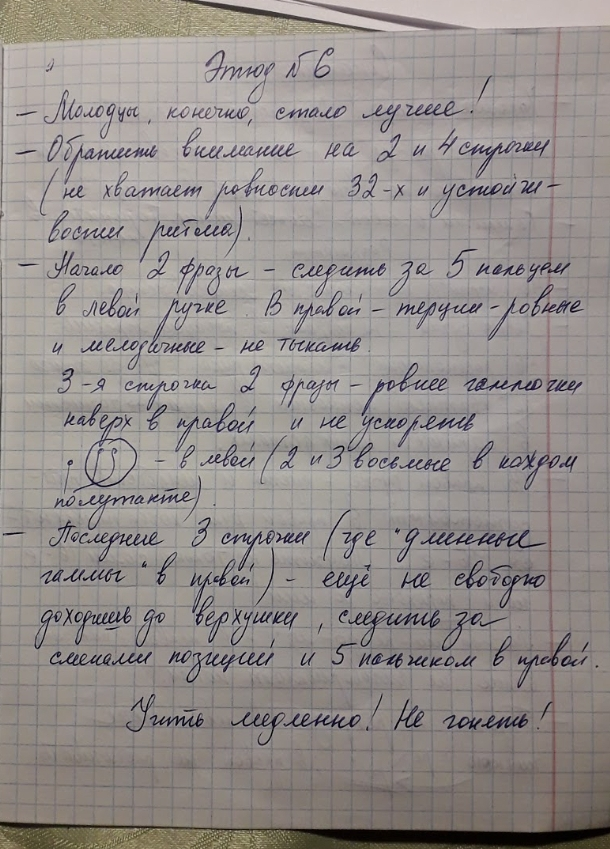 Этюд №6
— Молодцы, конечно, стало лучше!
— Обратить внимание на 2 и 4 строчки
(не хватает ровности 32-х и устойчи-
вости ритма).
— Начало 2 фразы – следить за 5 пальцем
в левой ручке. В правой – терции – ровные
и мелодичные – не тыкать.
3-я строчка 2 фразы – ровнее гаммочки
наверх в правой и не ускорять
– в левой (2 и 3 восьмые в каждом
полутакте).
— Последние 3 строчки (где "длинные
гаммы" в правой) – ещё не свободно
доходишь до верхушки, следить за
сменами позиций и 5 пальчиком в правой.
Учить медленно! Не гонять!